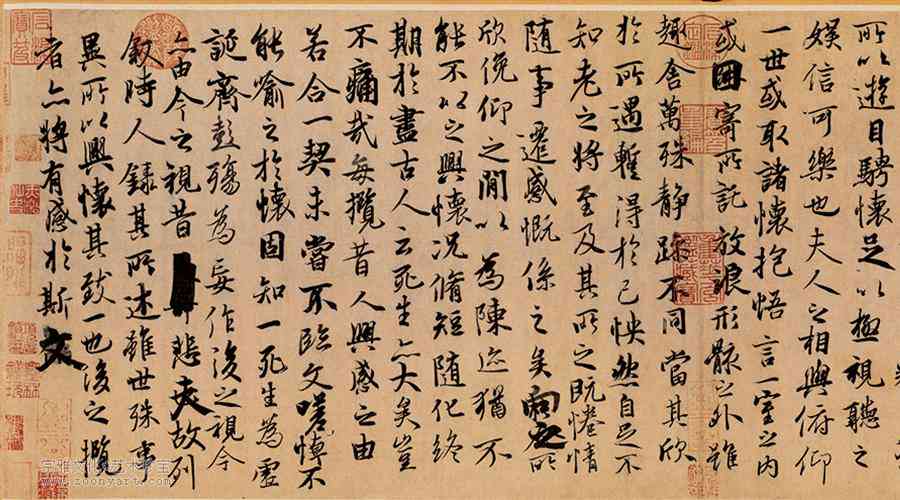 所以遊目騁懷足以極視聽之
娛信可樂也夫人之相與俯仰
一世或取諸懷抱悟言一室之內
或因寄所託放浪形骸之外雖
趣舍萬殊靜躁不同當其欣
於所遇暫得於己怏然自足不
知老之將至及其所之既惓情
隨事遷感慨係之矣向之所
欣俛仰之閒以為陳迹猶不
能不以之興懷況脩短隨化終
期於盡古人云死生亦大矣豈
不痛哉每攬昔人興感之由
若合一契未嘗不臨文嗟悼不
能喻之於懷固知一死生為虛
誕齊彭殤為妄作後之視今
亦由今之視昔悲夫故列
敘時人錄其所述雖世殊事
異所以興懷其致一也後之攬
者亦將有感於斯文